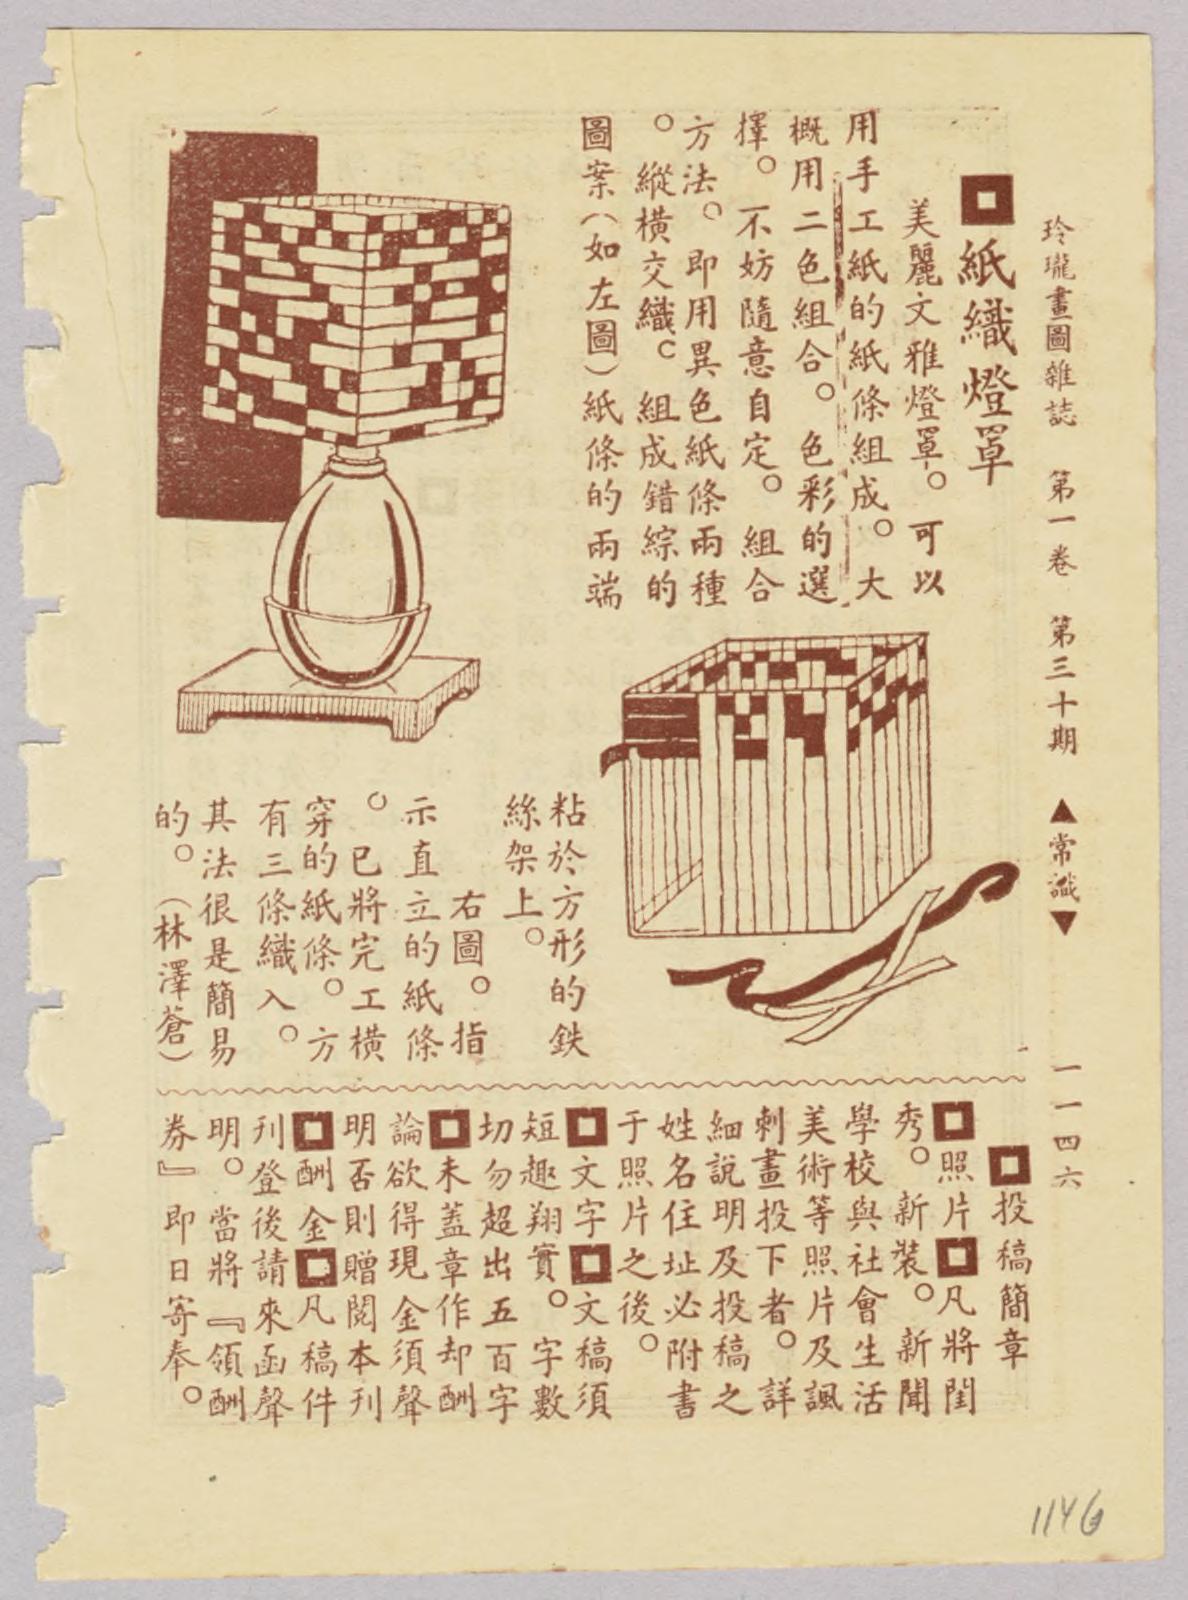 玲瓏畫圖雜誌　第一卷　第三十期　▲常識▼　一一四六
紙織燈罩
美麗文雅燈罩。可以
用手工紙的紙條組成。大
概用二色組合。色彩的選
擇。不妨隨意自定。組合
方法。即用異色紙條兩種
。縱橫交織。組成錯綜的
圖案（如左圖）紙條的兩端
粘於方形的鉄
絲架上。
右圖。指
示直立的紙條
。已將完工橫
穿的紙條。方
有三條織入。
其法很是簡易
的。（林澤蒼）
投稿簡章
照片 凡將閨
秀。新裝。新聞
學校與社會生活
美術等照片及諷
刺畫投下者。詳
細說明及投稿之
姓名住址必附書
于照片之後。
文字 文稿須
短趣翔實。字數
切勿超出五百字
未蓋章作却酬
論欲得現金須聲
明否則贈閱本刊
酬金 凡稿件
刊登後請來函聲
明。當將『領酬
券』即日寄奉。
1146